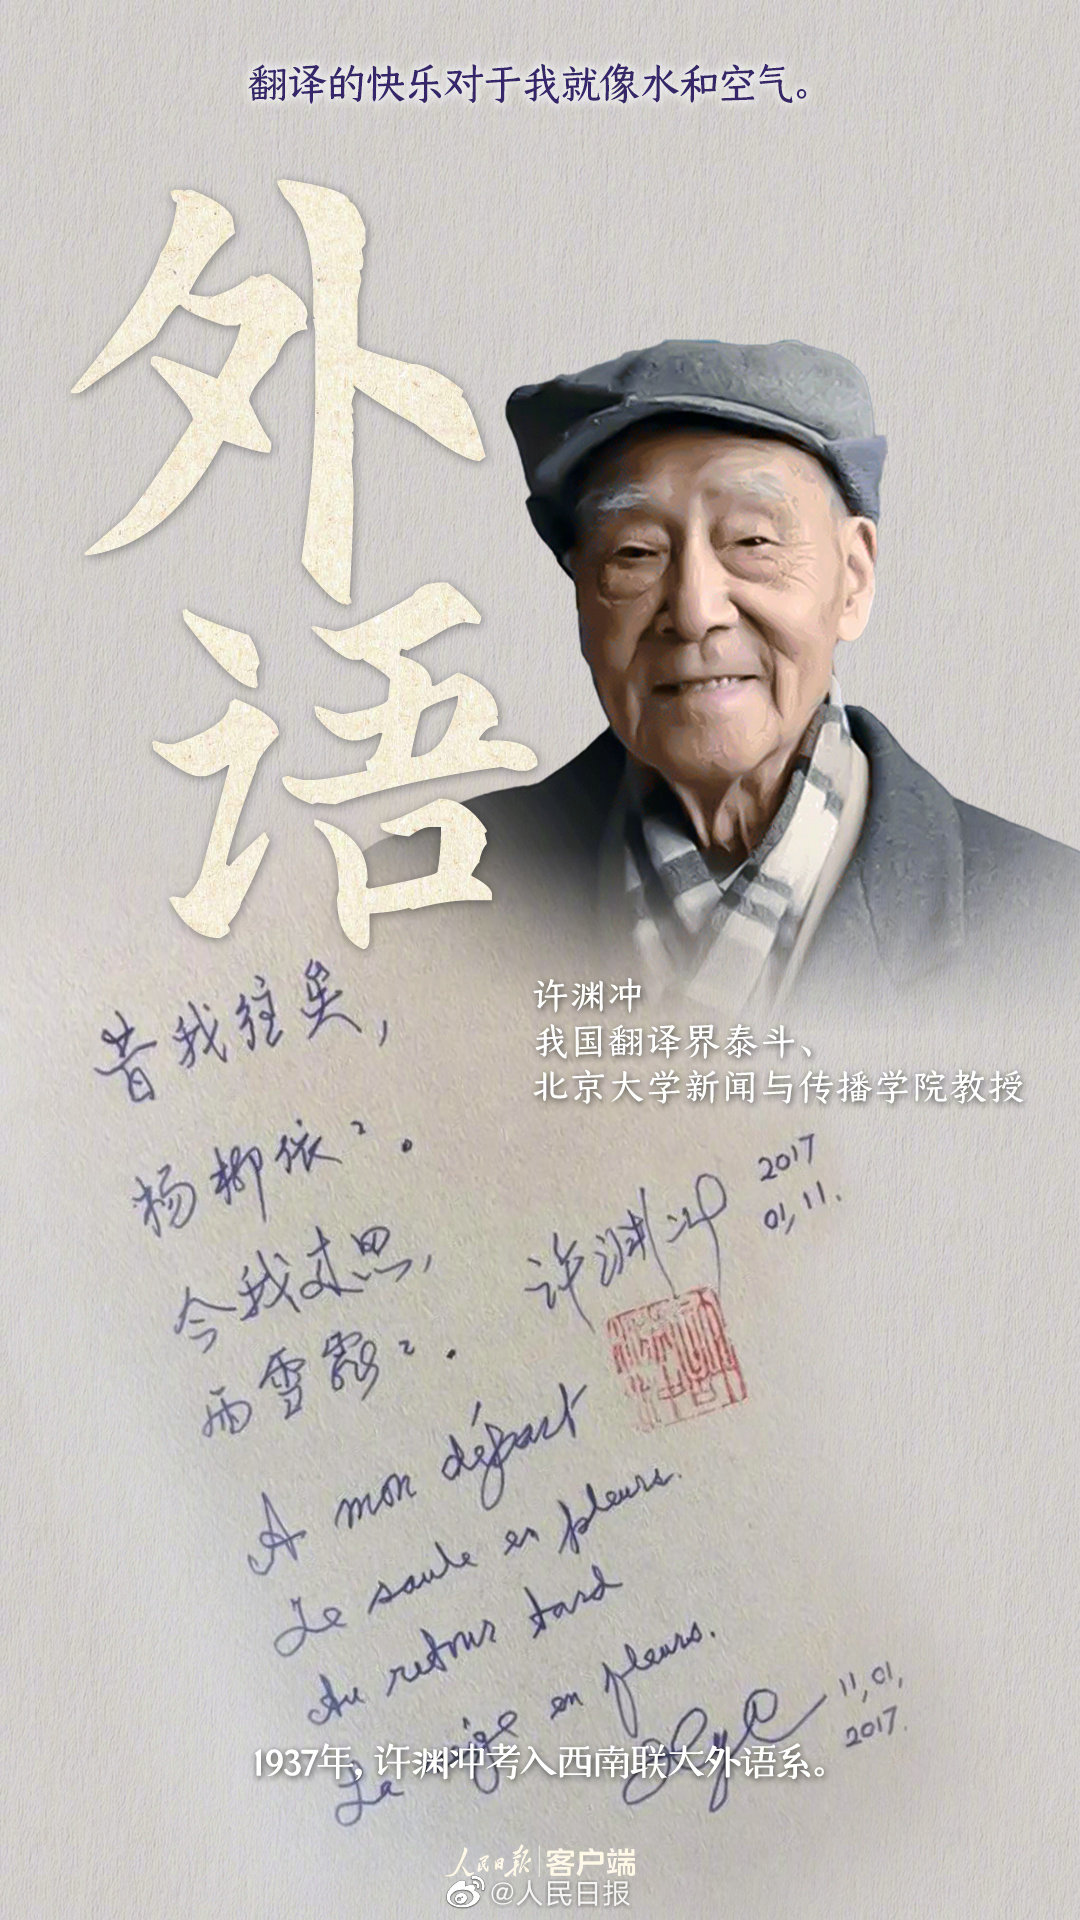 翻译的快乐对于我就像水和空气。
外
语
许渊冲
我国翻译界泰斗、
北京大学新闻与传播学院教授
昔我往矣，
杨柳依〻。
今我来思，
雨雪霏〻.
许渊冲
2017
01,11.
A mon départ
Le saule en pleurs.
Au retour tard
La neige en pleurs.
11,01,
2017.
1937年，许渊冲考入西南联大外语系。
人民日报 客户端
@人民日报